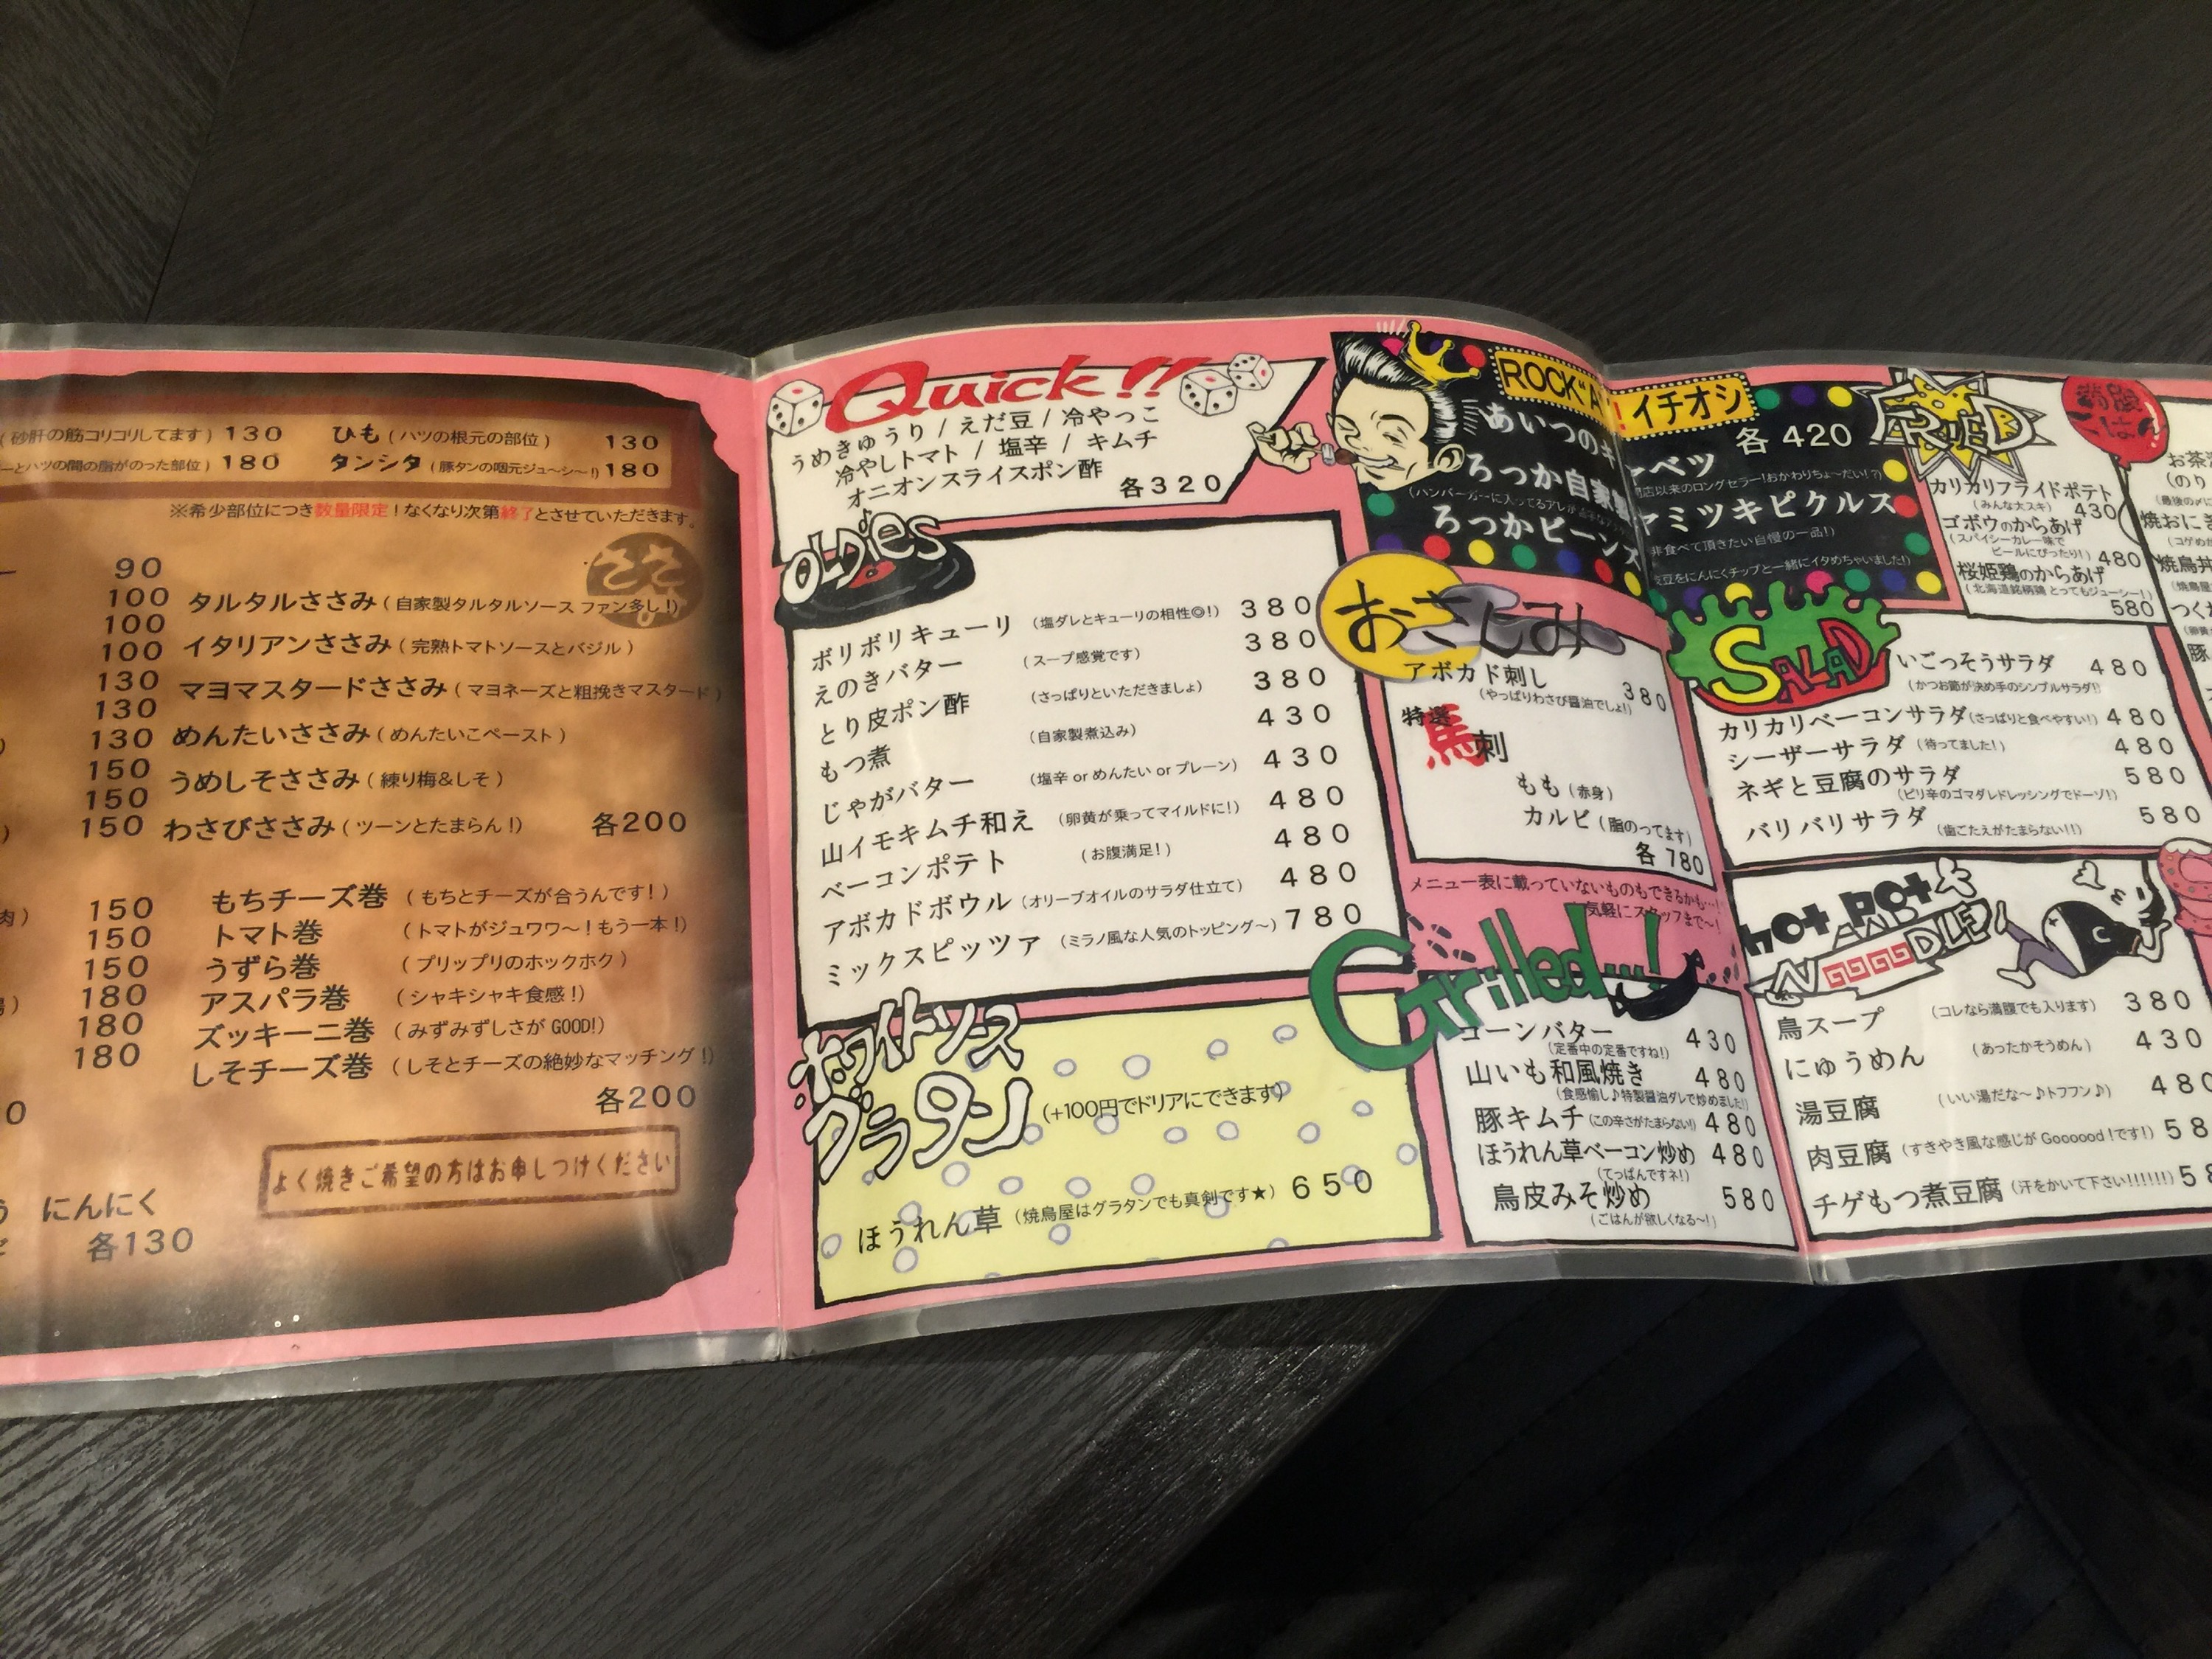 (砂肝の筋コリコリしてます) 130 ひも (ハツの根元の部位) 130
ーとハツの間の脂がのった部位) 180 タンシタ (豚タンの咽元ジュ〜シ〜!) 180
※希少部位につき数量限定!なくなり次第終了とさせていただきます。
90
100
100
100
130
130
130
150
150
150
ささみ
タルタルささみ (自家製タルタルソース ファン多し!)
イタリアンささみ (完熟トマトソースとバジル)
マヨマスタードささみ (マヨネーズと粗挽きマスタード)
めんたいささみ (めんたいこペースト)
うめしそささみ (練り梅&しそ)
わさびささみ (ツーンとたまらん!) 各200
肉) 150
150
150
180
180
180
もちチーズ巻 (もちとチーズが合うんです!)
トマト巻 (トマトがジュワワ〜!もう一本!)
うずら巻 (プリップリのホックホク)
アスパラ巻 (シャキシャキ食感!)
ズッキーニ巻 (みずみずしさがGOOD!)
しそチーズ巻 (しそとチーズの絶妙なマッチング!)
各200
よく焼きご希望の方はお申しつけください
にんにく
各130
Quick!!
うめきゅうり / えだ豆 / 冷やっこ
冷やしトマト / 塩辛 / キムチ
オニオンスライスポン酢
各320
OLDIES
ボリボリキューリ (塩ダレとキューリの相性◎!) 380
えのきバター (スープ感覚です) 380
とり皮ポン酢 (さっぱりといただきましょ) 380
もつ煮 (自家製煮込み) 430
じゃがバター (塩辛 or めんたい or プレーン) 430
山イモキムチ和え (卵黄が乗ってマイルドに!) 480
ベーコンポテト (お腹満足!) 480
アボカドボウル (オリーブオイルのサラダ仕立て) 480
ミックスピッツァ (ミラノ風な人気のトッピング〜) 780
ホワイトソース
グラタン (+100円でドリアにできます)
ほうれん草 (焼鳥屋はグラタンでも真剣です★) 650
ROCK"A
イチオシ
各 420
あいつのキ
ャベツ
開店以来のロングセラー!おかわりちょ〜だい!?)
ろっか自家製
ヤミツキピクルス
(ハンバーガーに入ってるアレが
非食べて頂きたい自慢の一品!)
ろっかビーンズ
豆をにんにくチップと一緒にイタめちゃいました!)
おさしみ
アボカド刺し 380
(やっぱりわさび醤油でしょ!)
特選
馬刺
もも (赤身)
カルビ (脂のってます)
各780
メニュー表に載っていないものもできるかも…!
気軽にスタッフまで〜!
Grilled...!
コーンバター 430
(定番中の定番ですね!)
山いも和風焼き 480
(食感愉し♪特製醤油ダレで炒めました!)
豚キムチ (この辛さがたまらない!) 480
ほうれん草ベーコン炒め 480
(てっぱんですネ!)
鳥皮みそ炒め 580
(ごはんが欲しくなる〜!)
FRIED
カリカリフライドポテト
(みんな大スキ) 430
ゴボウのからあげ
(スパイシーカレー味で
ビールにぴったり!) 480
桜姫鶏のからあげ
(北海道銘柄鶏 とってもジューシー!)
580
SALAD
いごっそうサラダ 480
(かつお節が決め手のシンプルサラダ!)
カリカリベーコンサラダ (さっぱりと食べやすい!) 480
シーザーサラダ (待ってました!) 480
ネギと豆腐のサラダ 580
(ピリ辛のゴマダレドレッシングでドーゾ!)
バリバリサラダ (歯ごたえがたまらない!!) 580
HOT POT
AND
NOOOODLE
鳥スープ (コレなら満腹でも入ります) 380
にゅうめん (あったかそうめん) 430
湯豆腐 (いい湯だな〜♪トフフン♪) 480
肉豆腐 (すきやき風な感じが Goooood!です!) 58
チゲもつ煮豆腐 (汗をかいて下さい!!!!!!) 58
お茶
(のり
焼おにぎ
焼鳥丼
つく
豚